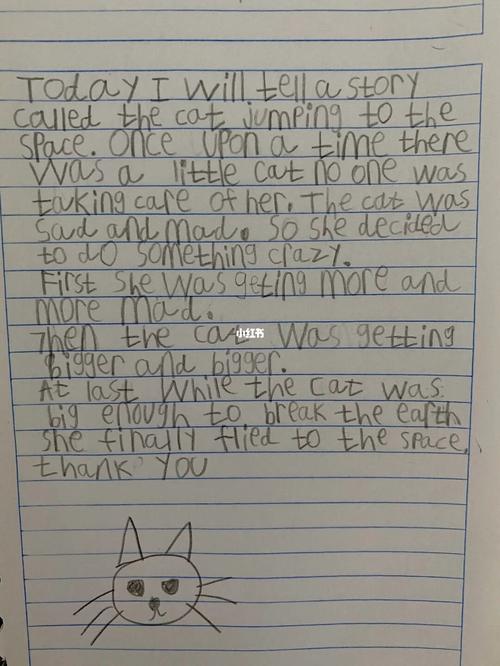 Today I will tell a story
called the cat jumping to the
space. Once upon a time there
was a little cat no one was
taking care of her. The cat was
sad and mad. So she decided
to do something crazy.
First she was geting more and
more mad.
Then the cat 小红书 was getting
bigger and bigger.
At last while the cat was
big enough to break the earth
she finally flied to the space.
thank you